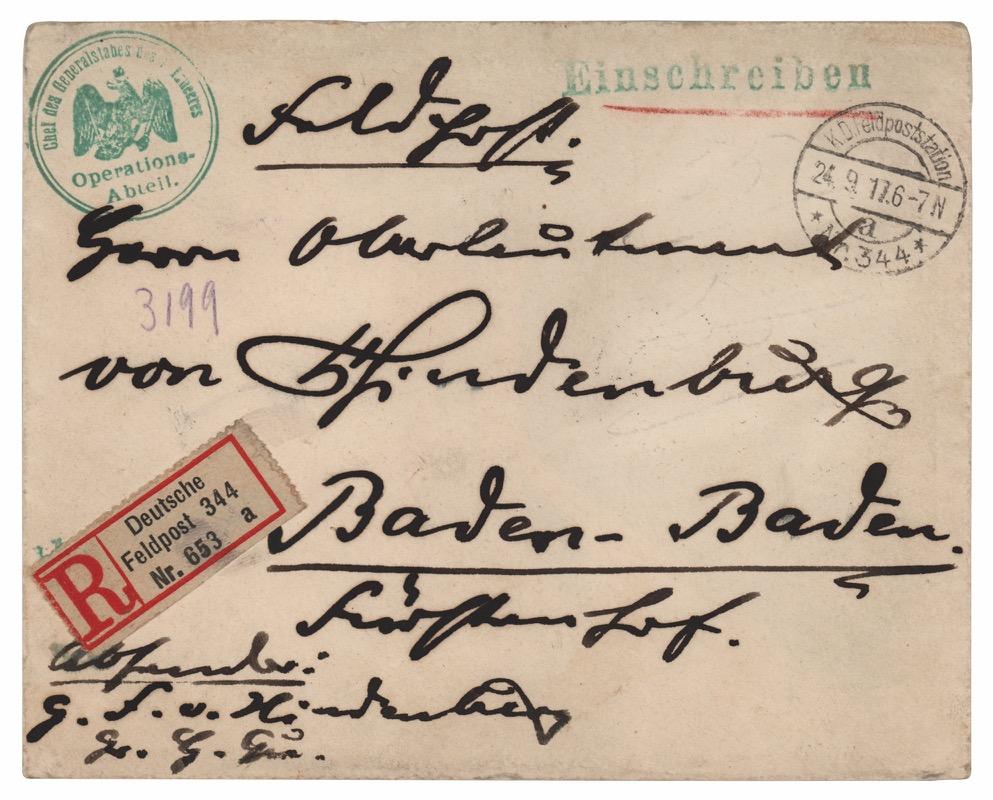 Chef des Generalstabes des Feldheeres
Operations-
Abteil.
Einschreiben
Feldpost.
K.D. Feldpoststation
24.9.17. 6-7N
a
* Nr. 344 *
Herrn Oberleutnant
3199
von Hindenburg
Baden-Baden.
Fürstenhof.
R
Deutsche
Feldpost 344
Nr. 653 a
Absender:
G. F. v. Hindenburg
Gr. H. Qu.